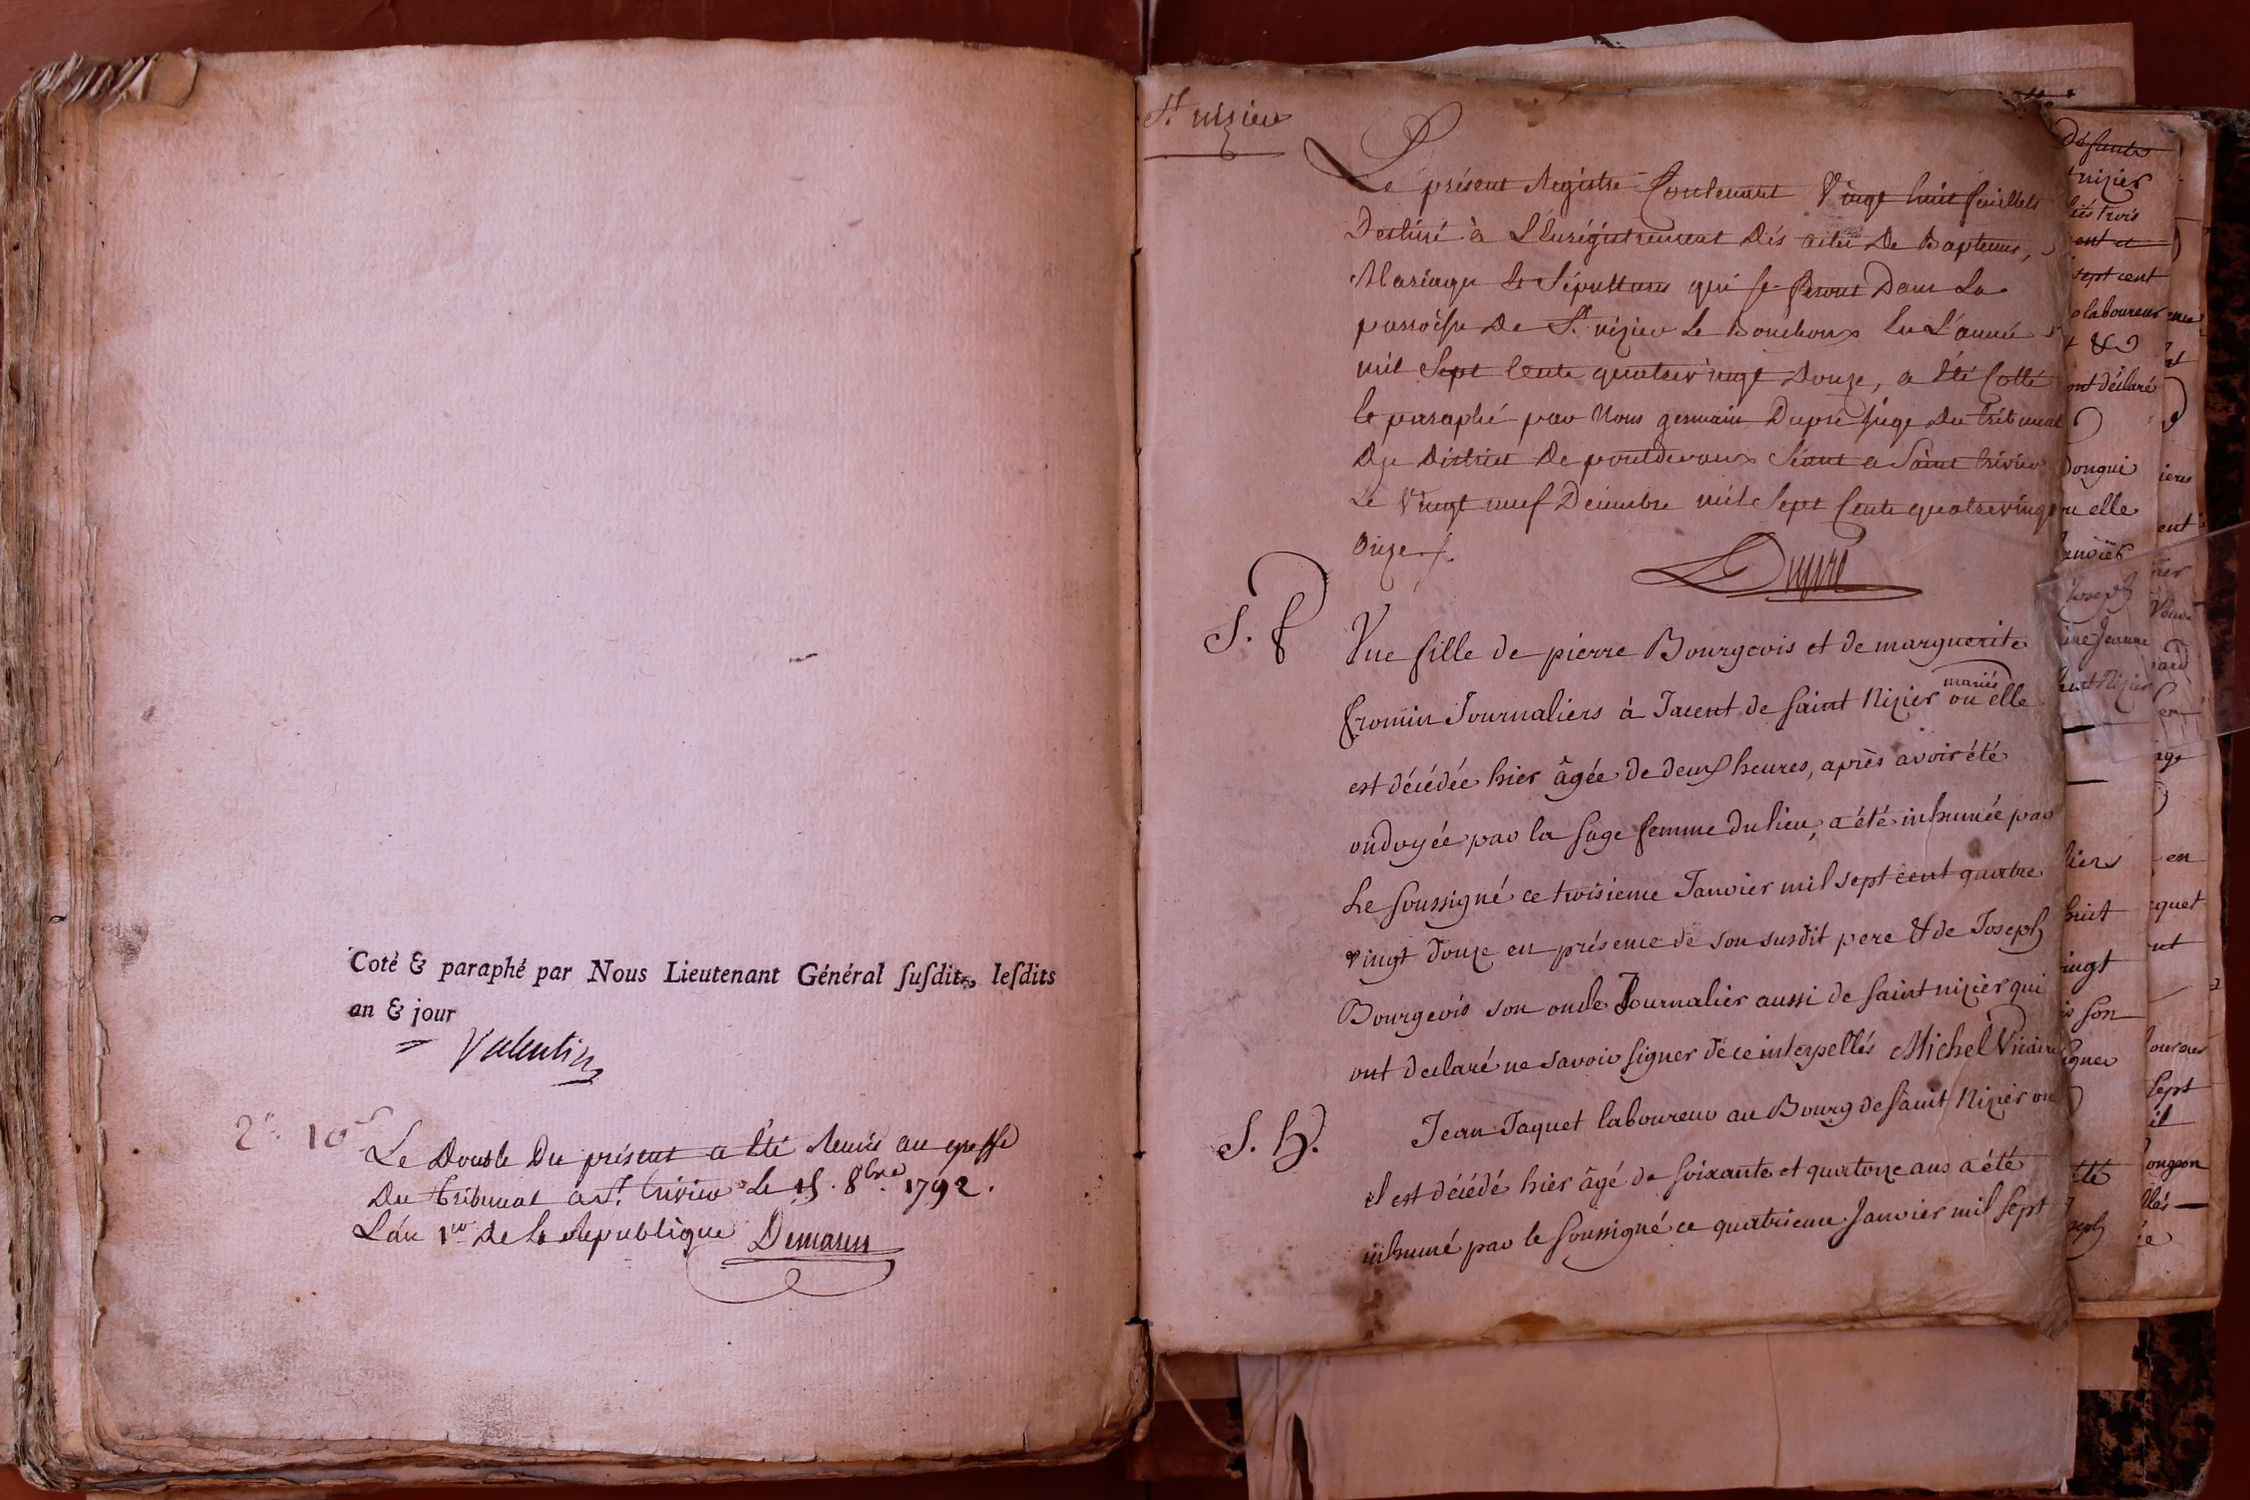 Coté & paraphé par Nous Lieutenant Général ſuſdit, leſdits
an & jour
Valentin
Le Double Du présent a Eté Remis au greffe
Du Tribunal a St. trivier Le 15. 8bre 1792.
L'an 1er de la Republique Demarin
St nizier
Le présent Registre Contenant Vingt huit feuillets
Destiné à L'Enrégistrement Dés actes De Baptemes,
Mariages Et Sépultures qui se feront Dans La
parroisse De St. nizier Le Bouchoux En L'année
mil Sept Cents quatrevingt Douze, a Eté Cotté
Et paraphé par Nous germain Dupré Juge Du tribunal
Du District De pontdevaux Séant a Saint trivier
Le Vingt neuf Decembre mil Sept Cents quatrevingt
Onze./.
Dupré
S. f
Une fille de pierre Bourgeois et de marguerite
mariés
fromin Journaliers à Tacent de saint Nizier ou elle
est décédée hier âgée de deux heures, après avoir été
ondoyée par la sage femme du lieu, a été inhumée par
Le soussigné ce troisieme Janvier mil sept cent quatre
vingt douze en présence de son susdit pere & de Joseph
Bourgeois son oncle Journalier aussi de saint nizier qui
ont declaré ne savoir signer de ce interpellés Michel Vicaire
S. h.
Jean Jaquet laboureur au Bourg de saint Nizier ou
il est décédé hier âgé de soixante et quatorze ans a été
inhumé par le soussigné ce quatrieme Janvier mil sept